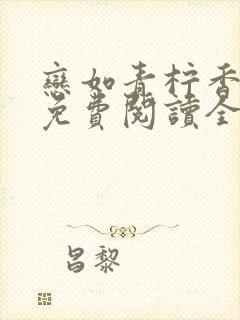 戀如青柠香
免費閱讀全
昌黎